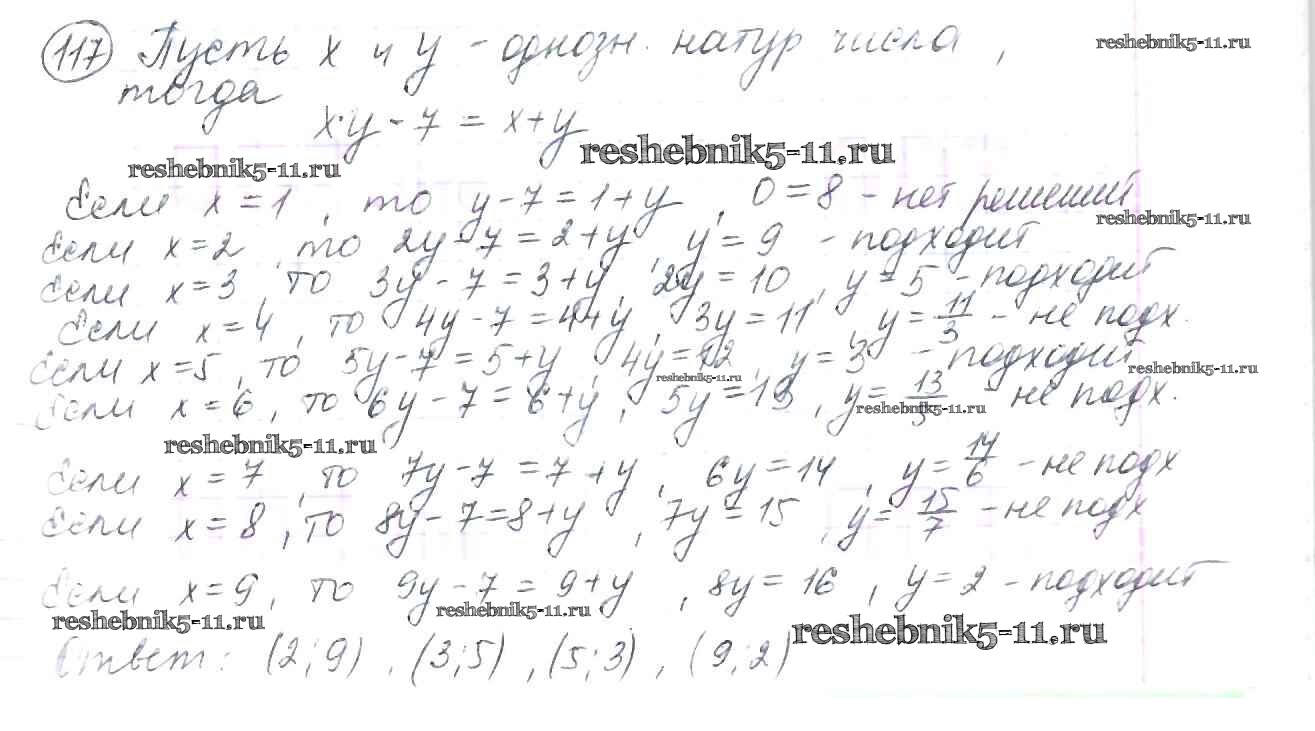 117 Пусть x и y - однозн. натур числа,
reshebnik5-11.ru
тогда
x·y - 7 = x+y
reshebnik5-11.ru
reshebnik5-11.ru
Если x=1, то y-7=1+y, 0=8 - нет решений
reshebnik5-11.ru
Если x=2, то 2y-7=2+y, y=9 - подходит
Если x=3, то 3y-7=3+y, 2y=10, y=5 - подходит
Если x=4, то 4y-7=4+y, 3y=11, y=11/3 - не подх.
Если x=5, то 5y-7=5+y, 4y=12, y=3 - подходит
reshebnik5-11.ru
reshebnik5-11.ru
Если x=6, то 6y-7=6+y, 5y=13, y=13/5 - не подх.
reshebnik5-11.ru
reshebnik5-11.ru
Если x=7, то 7y-7=7+y, 6y=14, y=14/6 - не подх
Если x=8, то 8y-7=8+y, 7y=15, y=15/7 - не подх
Если x=9, то 9y-7=9+y, 8y=16, y=2 - подходит
reshebnik5-11.ru
reshebnik5-11.ru
reshebnik5-11.ru
Ответ: (2;9), (3;5), (5;3), (9;2)